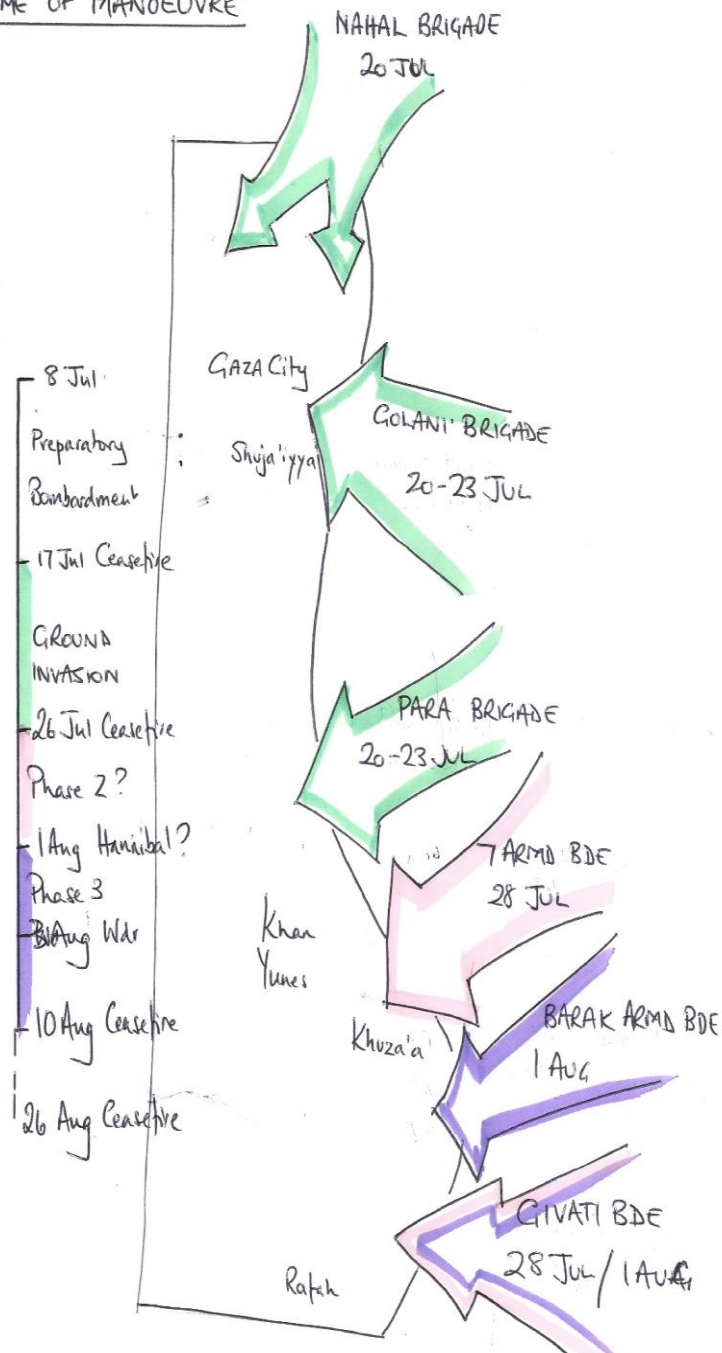 ME OF MANOEUVRE
NAHAL BRIGADE
20 JUL
8 Jul
Preparatory
Bombardment
17 Jul Ceasefire
GROUND
INVASION
26 Jul Ceasefire
Phase 2?
1 Aug Hannibal?
Phase 3
Aug Wdr
10 Aug Ceasefire
26 Aug Ceasefire
GAZA City
Shuja'iyya
GOLANI BRIGADE
20-23 JUL
PARA BRIGADE
20-23 JUL
7 ARMD BDE
28 JUL
Khan
Yunes
Khuza'a
BARAK ARMD BDE
1 AUG
GIVATI BDE
28 JUL / 1 AUG
Rafah